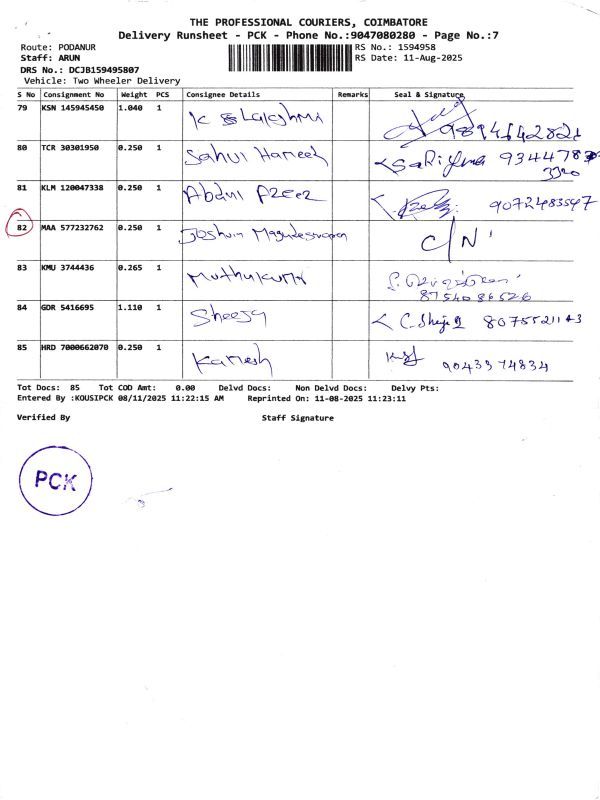 THE PROFESSIONAL COURIERS, COIMBATORE
Delivery Runsheet - PCK - Phone No.:9047080280 - Page No.:7
Route: PODANUR RS No.: 1594958
Staff: ARUN RS Date: 11-Aug-2025
DRS No.: DCJB159495807
Vehicle: Two Wheeler Delivery
S No Consignment No Weight PCS Consignee Details Remarks Seal & Signature
79 KSN 145945450 1.040 1 K Lakshmi 9894642821
80 TCR 30301950 0.250 1 Sahul Hameed 9344783
3320
81 KLM 120047338 0.250 1 Abdul Azeez 9072483547
82 MAA 577232762 0.250 1 C/N
83 KMU 3744436 0.265 1 Muthukumar
8754086526
84 GDR 5416695 1.110 1 Sheeja
85 HRD 7000662070 0.250 1 Kamesh 9043374834
Tot Docs: 85 Tot COD Amt: 0.00 Delvd Docs: Non Delvd Docs: Delvy Pts:
Entered By :KOUSIPCK 08/11/2025 11:22:15 AM Reprinted On: 11-08-2025 11:23:11
Verified By Staff Signature
PCK